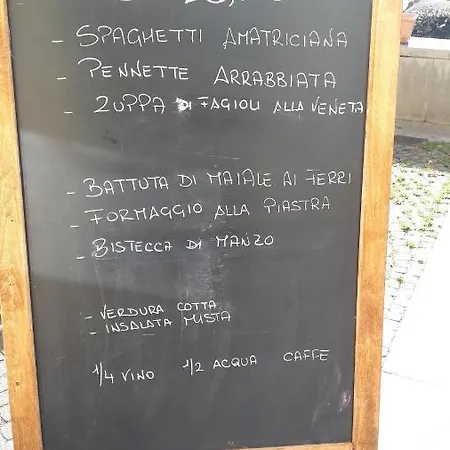 - SPAGHETTI AMATRICIANA
- PENNETTE ARRABBIATA
- ZUPPA DI FAGIOLI ALLA VENETA
- BATTUTA DI MAIALE AI FERRI
- FORMAGGIO ALLA PIASTRA
- BISTECCA DI MANZO
- VERDURA COTTA
- INSALATA MISTA
1/4 VINO 1/2 ACQUA CAFFE